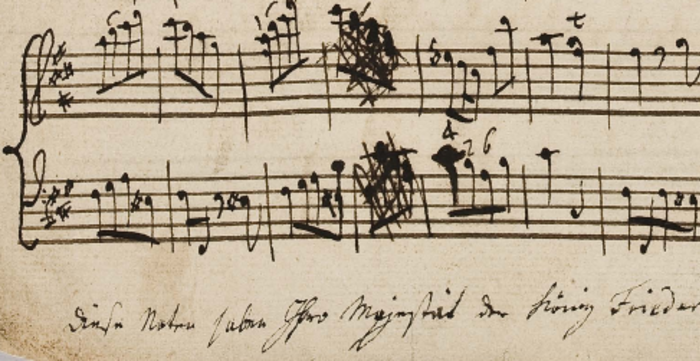 t
6
4 2 6
diese Noten haben Ihro Majestät der König Frieder